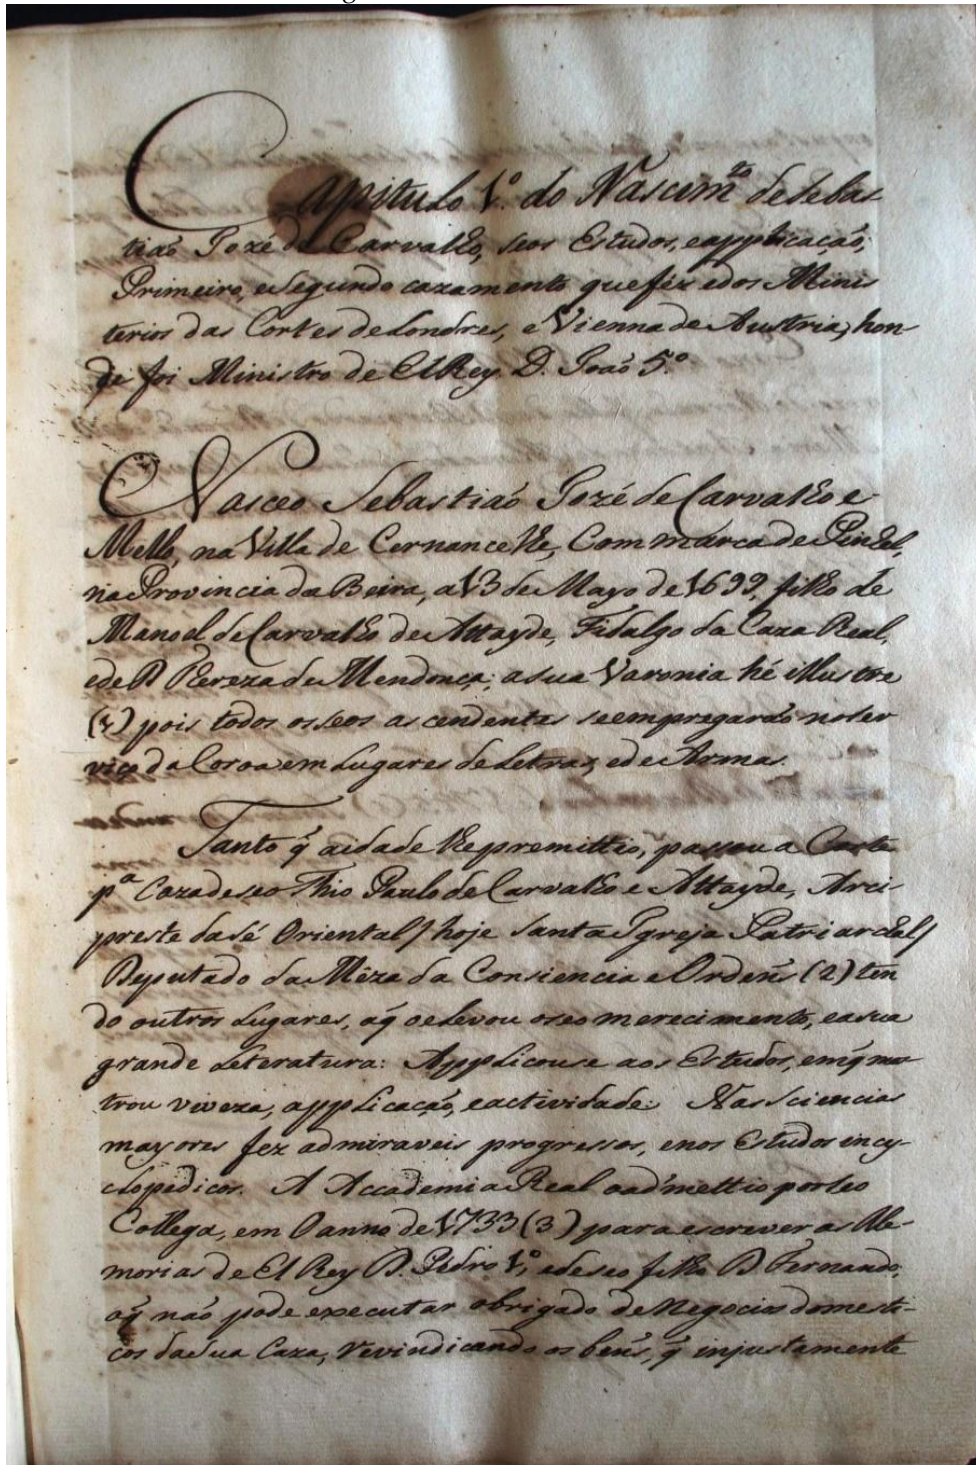 Capitulo 1º. do Nascimto de Sebas-
tiaõ Jozé de Carvalho, seos Estudos, eapplicaçaõ,
Primeiro, eSegundo cazamento quefez edos Minis
terios das Cortes deLondres, e Vienna de Austria, hon-
de foi Ministro de ElRey D. Joaõ 5.º
Nasceo Sebastiaõ Jozé de Carvalho e
Mello, na Villa de Cernancelhe, Commarca de Pinhel,
na Provincia da Beira, a 13 de Mayo de 1699, filho de
Manoel de Carvalho de Attayde, Fidalgo da Caza Real,
ede D Thereza de Mendonça; asua Varonia hé illustre
(1) pois todos osseos ascendentes seempregaraõ noser
viço da Coroa em Lugares de Letras, ede Armas.
Tanto q̃ aidade lhepremittio, passou a Corte
pª Caza deseo Thio Paulo de Carvalho e Attayde, Arci-
preste da Sé Oriental / hoje Santa Igreja Patriarchal /
Deputado da Meza da Consiencia e Ordeñs (2) ten
do outros Lugares, aq̃ oelevou oseo merecimento, easua
grande Leteratura: Applicouse aos Estudos, emq̃ mos
trou viveza, applicaçaõ, eactividade: Nas Sciencias
mayores fez admiraveis progressos, enos Estudos incy-
clopedicos. A Accademia Real oadmettio porseo
Collega, em O anno de 1733 (3) para escrever as Me-
morias de El Rey D. Pedro 1º, edeseo filho D Fernando,
oq̃ naõ pode executar obrigado de Negocios domesti-
cos da Sua Caza, Revindicando os beñs, q̃ injustamente